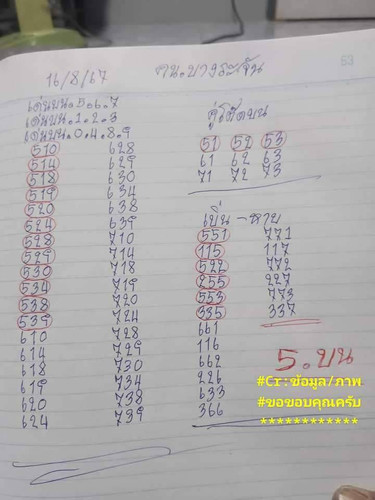 53
16/8/67 คน.บางระจัน
เด่นบน.5.6.7
เด่นบน.1.2.3
เด่นบน.0.4.8.9
510 628
514 629
518 630
519 634
520 638
524 639
528 710
529 714
530 718
534 719
538 720
539 724
610 728
614 729
618 730
619 734
620 738
624 739
คู่โต๊ดบน
51 52 53
61 62 63
71 72 73
เบิ้ล-หาม
551 771
115 117
522 772
255 227
553 773
335 337
661
116
662
226
633
366
5.บน
#Cr:ข้อมูล/ภาพ
#ขอขอบคุณครับ
************